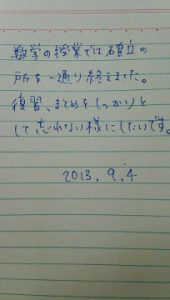 数学の授業では確立の
所を一通り終えました。
復習、まとめをしっかりと
して忘れない様にしたいです。
2013.9.4